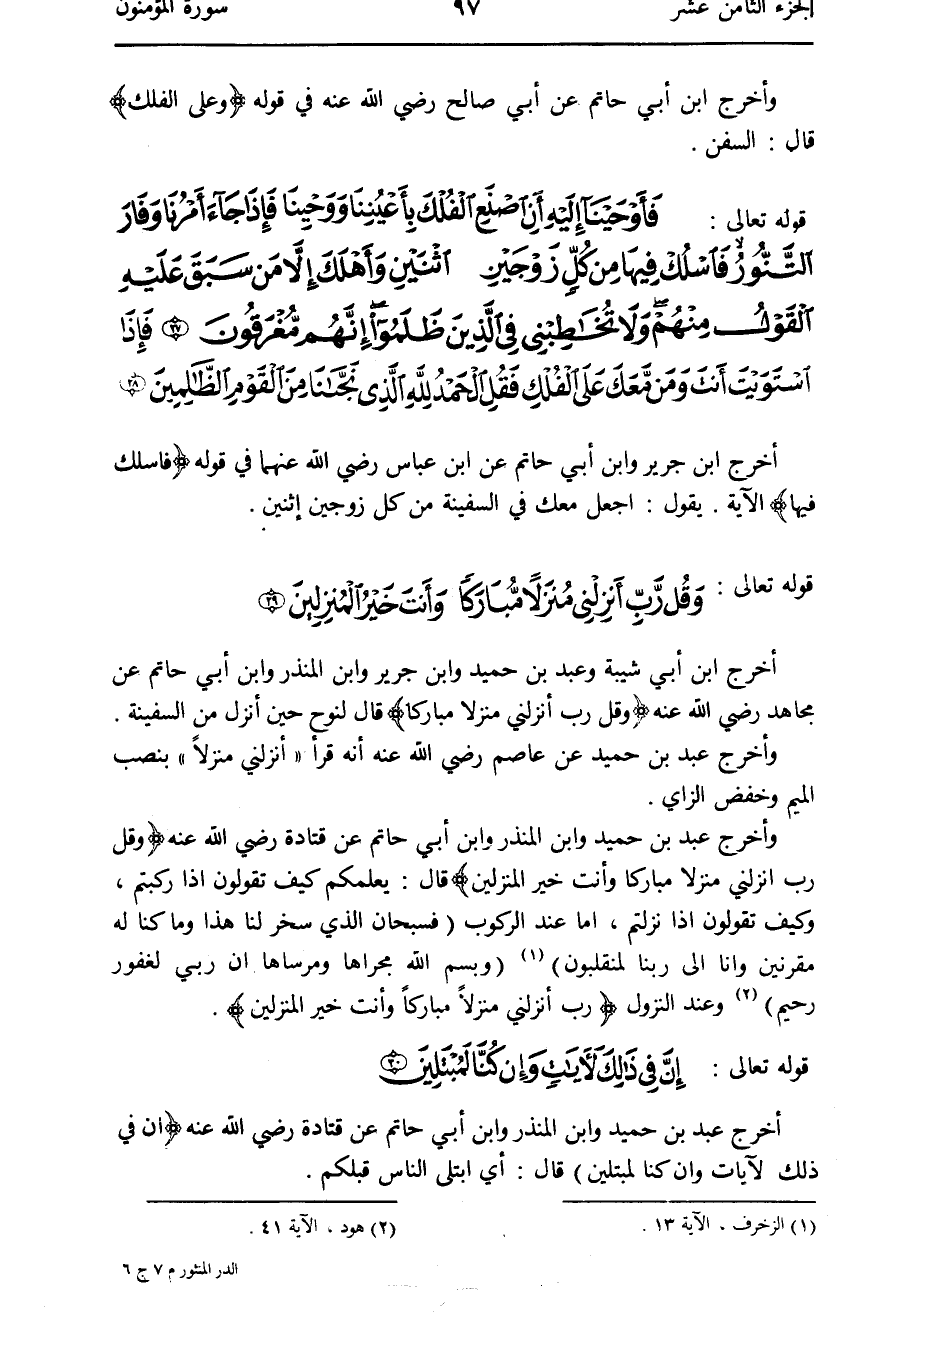 الجزء الثامن عشر ٩٧ سورة المؤمنون
وأخرج ابن أبي حاتم عن أبي صالح رضي الله عنه في قوله ﴿وعلى الفلك﴾
قال : السفن .
قوله تعالى : فَأَوْحَيْنَآ إِلَيْهِ أَنِ ٱصْنَعِ ٱلْفُلْكَ بِأَعْيُنِنَا وَوَحْيِنَا فَإِذَا جَآءَ أَمْرُنَا وَفَارَ
ٱلتَّنُّورُ فَٱسْلُكْ فِيهَا مِن كُلٍّ زَوْجَيْنِ ٱثْنَيْنِ وَأَهْلَكَ إِلَّا مَن سَبَقَ عَلَيْهِ
ٱلْقَوْلُ مِنْهُمْ وَلَا تُخَاطِبْنِي فِي ٱلَّذِينَ ظَلَمُوٓا۟ إِنَّهُم مُّغْرَقُونَ ٢٧ فَإِذَا
ٱسْتَوَيْتَ أَنتَ وَمَن مَّعَكَ عَلَى ٱلْفُلْكِ فَقُلِ ٱلْحَمْدُ لِلَّهِ ٱلَّذِي نَجَّىٰنَا مِنَ ٱلْقَوْمِ ٱلظَّـٰلِمِينَ ٢٨
أخرج ابن جرير وابن أبي حاتم عن ابن عباس رضي الله عنهما في قوله ﴿فاسلك
فيها﴾ الآية . يقول : اجعل معك في السفينة من كل زوجين إثنين .
قوله تعالى : وَقُل رَّبِّ أَنزِلْنِي مُنزَلًا مُّبَارَكًا وَأَنتَ خَيْرُ ٱلْمُنزِلِينَ ٢٩
أخرج ابن أبي شيبة وعبد بن حميد وابن جرير وابن المنذر وابن أبي حاتم عن
مجاهد رضي الله عنه ﴿وقل رب أنزلني منزلا مباركا﴾ قال لنوح حين أنزل من السفينة .
وأخرج عبد بن حميد عن عاصم رضي الله عنه أنه قرأ « أنزلني منزلاً » بنصب
الميم وخفض الزاي .
وأخرج عبد بن حميد وابن المنذر وابن أبي حاتم عن قتادة رضي الله عنه ﴿وقل
رب انزلني منزلا مباركا وأنت خير المنزلين﴾ قال : يعلمكم كيف تقولون اذا ركبتم ،
وكيف تقولون اذا نزلتم ، اما عند الركوب ( فسبحان الذي سخر لنا هذا وما كنا له
مقرنين وانا الى ربنا لمنقلبون) (١) (وبسم الله مجراها ومرساها ان ربي لغفور
رحيم) (٢) وعند النزول ﴿ رب أنزلني منزلاً مباركاً وأنت خير المنزلين ﴾ .
قوله تعالى : إِنَّ فِي ذَٰلِكَ لَأَيَـٰتٍ وَإِن كُنَّا لَمُبْتَلِينَ ٣٠
أخرج عبد بن حميد وابن المنذر وابن أبي حاتم عن قتادة رضي الله عنه ﴿ان في
ذلك لآيات وان كنا لمبتلين) قال : أي ابتلى الناس قبلكم .
(١) الزخرف ، الآية ١٣ . (٢) هود ، الآية ٤١ .
الدر المنثور م ٧ ج ٦